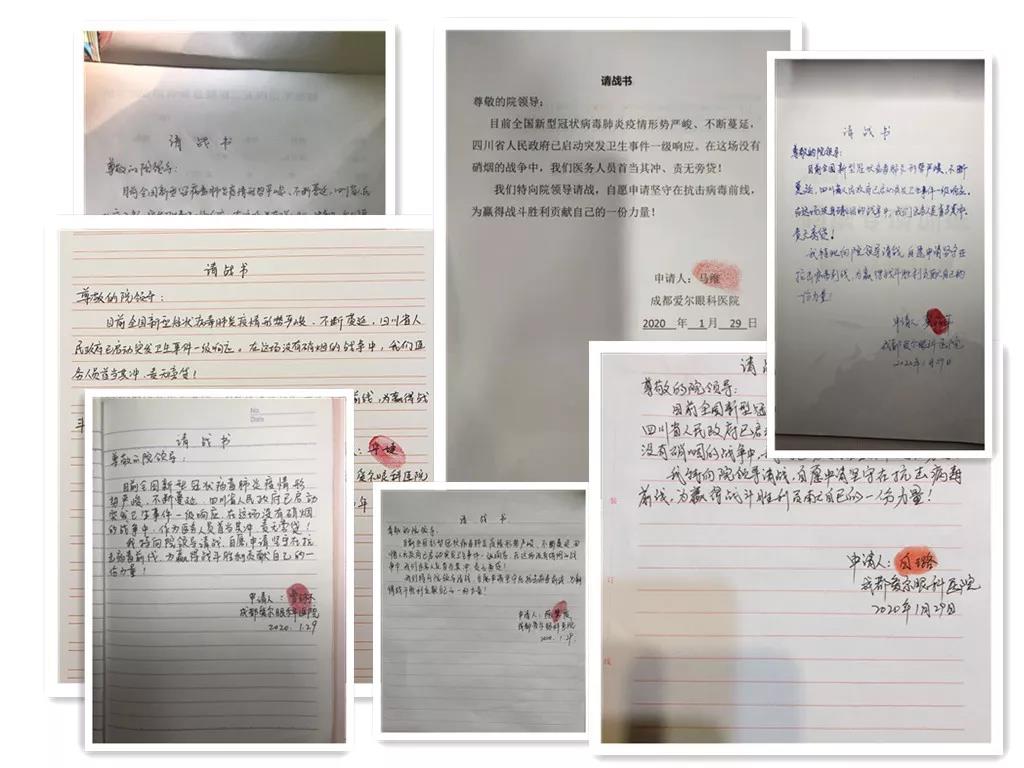 请战书
尊敬的院领导:
目前全国新型冠状病毒肺炎疫情形势严峻、不断蔓延,四川省人民
请战书
尊敬的院领导:
目前全国新型冠状病毒肺炎疫情形势严峻、不断蔓延,
四川省人民政府已启动突发卫生事件一级响应。在这场没有
硝烟的战争中,我们医务人员首当其冲、责无旁贷!
我们特向院领导请战,自愿申请坚守在抗击病毒前线,
为赢得战斗胜利贡献自己的一份力量!
申请人:马维
成都爱尔眼科医院
2020 年 1月 29日
请战书
尊敬的院领导:
目前全国新型冠状病毒肺炎形势严峻、不断
蔓延,四川省人民政府已启动突发卫生事件一级响应。
在这场没有硝烟的战争中,我们医务人员首当其冲、
责无旁贷!
我特地向院领导请战,自愿申请坚守在
抗击病毒前线,为赢得战斗胜利贡献自己的
一份力量!
申请人
成都爱尔眼科医院
2020年1月29日
请战书
尊敬的院领导:
目前全国新型冠状病毒肺炎疫情形势严峻、不断蔓延,四川省人
民政府已启动突发卫生事件一级响应。在这场没有硝烟的战争中,我们医
务人员首当其冲、责无旁贷!
前线,为赢得战
斗
华婕
爱尔眼科医院
年
请战
尊敬的院领导:
目前全国新型冠
四川省人民政府已启
没有硝烟的战争中,
我特向院领导请战,自愿申请坚守在抗击病毒
前线,为赢得战斗胜利贡献自己的一份力量!
申请人:
成都爱尔眼科医院
2020年1月29日
No.
Date
请战书
尊敬的院领导:
目前全国新型冠状病毒肺炎疫情形
势严峻、不断蔓延,四川省人民政府已启动
突发卫生事件一级响应。在这场没有硝烟
的战争中,作为医务人员首当其冲、责无旁贷!
我特向院领导请战,自愿申请坚守在抗
击病毒前线,为赢得战斗胜利贡献自己的一
份力量!
申请人:
成都爱尔眼科医院
2020.1.29
请战书
尊敬的院领导:
目前全国新型冠状病毒肺炎疫情形势严峻、不断蔓延,四
川省人民政府已启动突发卫生事件一级响应。在这场没有硝烟的战
争中,我们医务人员首当其冲、责无旁贷!
我们特向院领导请战,自愿申请坚守在抗击病毒前线,为赢
得战斗胜利贡献自己的一份力量!
申请人:
成都爱尔眼科医院
2020.1.29
装
订
线